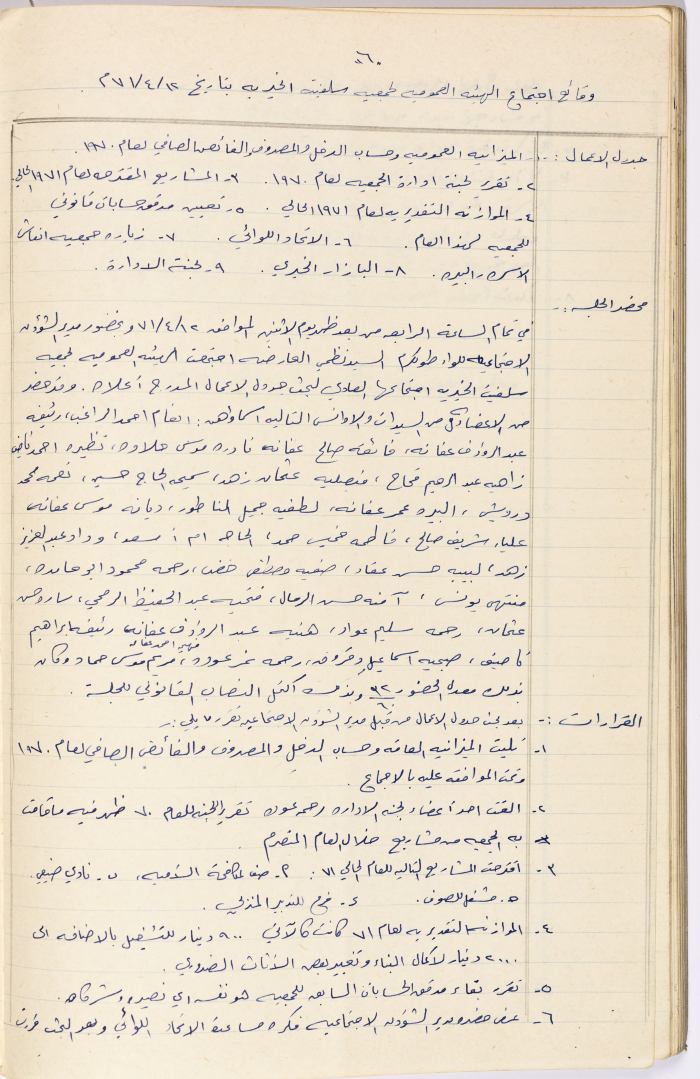 ٦٠
وقائع اجتماع الهيئه العموميه لجمعيه سلفيت الخيريه بتاريخ ٧١/٤/١٢م
جدول الاعمال :- ١- الميزانيه العموميه وحساب الدخل والمصروف والفائض الصافي لعام ١٩٧٠.
٢- تقرير لجنة ادارة الجمعيه لعام ١٩٧٠. ٣- المشاريع المقترحه لعام ١٩٧١ الحالي
٤- الموازنه التقديريه لعام ١٩٧١ الحالي. ٥- تعيين مدقق حسابات قانوني
للجمعيه لهذا العام. ٦- الاتحاد اللوائي. ٧- زيارة جمعيه انعاش
الاسره البيره. ٨- البازار الخيري. ٩- لجنة الادارة.
محضر الجلسه :-
في تمام الساعة الرابعه من بعد ظهر يوم الاثنين الموافق ٧١/٤/١٢ وبحضور مدير الشؤون
الاجتماعيه للواء طولكرم السيد نظمي العارضه اجتمعت الهيئه العموميه لجمعيه
سلفيت الخيريه اجتماعها العادي لبحث جدول الاعمال المدرج أعلاه. وقد حضر
من الاعضاء كل من السيدات والاوانس التاليه اسماؤهن: انعام احمد الراغب، رئيفه
عبد الرؤوف عفانه، فائقه صالح عفانه نادره موسى حلاوه، نظيره احمد
زاهيه عبد الرحيم فتاح، فيصليه عثمان زهد، سميحه الحاج حسن، نعمه محمد
درويش، البيره عمر عفانه، لطفيه جميل الناطور، ديانه موسى عفانه
علياء شريف صالح، فاطمه خميس حمد، الحاجه ام أسعد، وداد عبد العزيز
زهد، لبيبه حسن عقاد، صفيه مصطفى خضر، رحمه محمود ابو حامده،
منتهى يونس، آمنه حسن الرمال، فتحيه عبد الحفيظ الرحمي، ساره حسن
عثمان، رحمه سليم عواد، هنيه عبد الرؤوف عفانه رئيفه ابراهيم
صبحيه اسماعيل رحمه نمر عوده، مريم موسى حماد وكان
بذلك معدل الحضور ٣٢ وبذلك اكتمل النصاب القانوني للجلسة.
القرارات :- بعد بحث جدول الاعمال من قبل مدير الشؤون الاجتماعيه تقرر ما يلي :-
١- تليت الميزانيه العامه وحساب الدخل والمصروف والفائض الصافي لعام ١٩٧٠
وتمت الموافقه عليه بالاجماع.
٢- القت احد أعضاء لجنة الاداره رحمه عوده تقرير اللجنه للعام ٧٠ ظهر فيه ما قامت
به الجمعيه من مشاريع خلال العام المنصرم
٣- اقترحت المشاريع التاليه للعام الحالي ٧١: ٢- صف لمكافحة الاميه، نادي صيفي.
٥- مشغل للصوف. ٤- فرع للتدبير المنزلي.
٤- الموازنه التقديريه لعام ٧١ كانت كالآتي ٩٠٠ دينار للتشغيل بالاضافه الى
٢٠٠٠ دينار لاكمال البناء وتغيير بعض الاثاث الضروري.
٥- تقرر بقاء مدقق الحسابات السابق للجمعيه هو نفسه اي نصير وشركاه.
٦- عرض حضره مدير الشؤون الاجتماعيه فكره مساعدة الاتحاد اللوائي وبعد البحث قررت